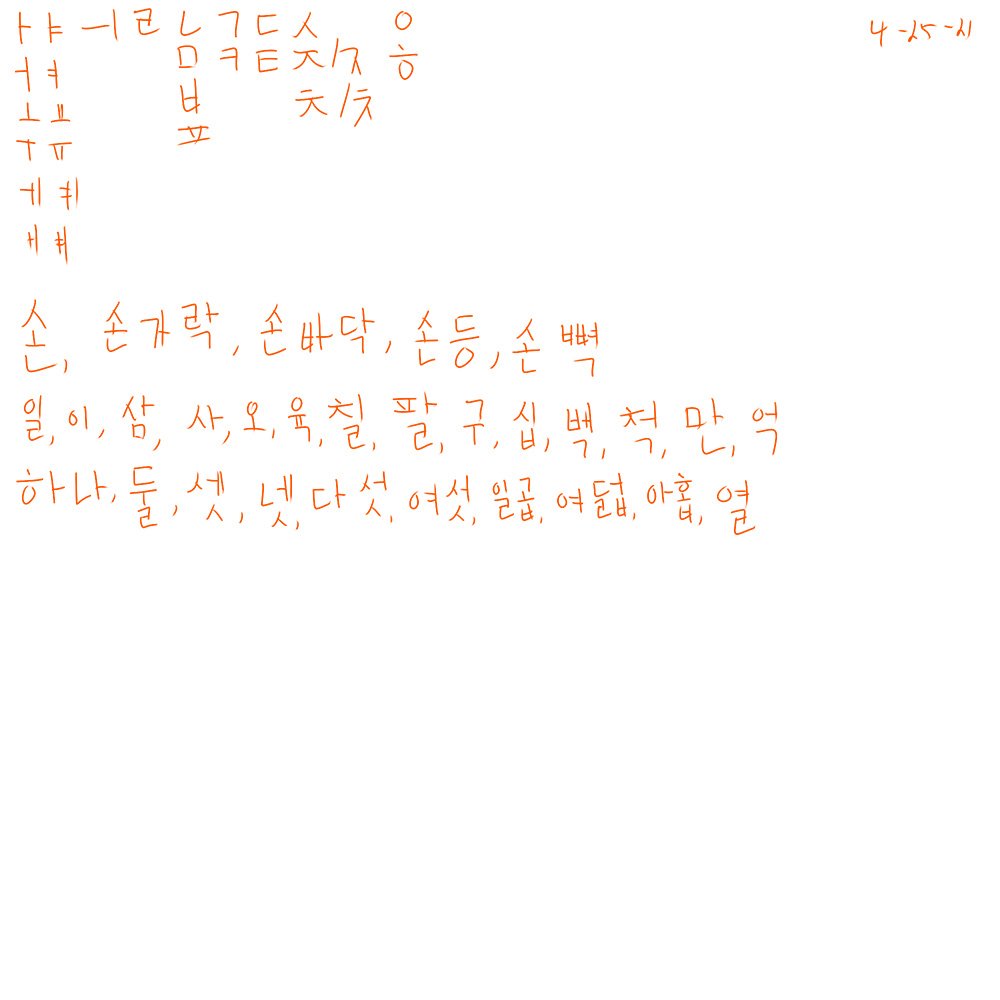 ㅏ ㅑ ㅡ ㅣ ㄹ ㄴ ㄱ ㄷ ㅅ ㅇ 4-25-21
ㅓ ㅕ ㅁ ㅋ ㅌ ㅈ/ㅈ ㅎ
ㅗ ㅛ ㅂ ㅊ/ㅊ
ㅜ ㅠ ㅍ
ㅔ ㅖ
ㅐ ㅒ
손, 손가락, 손바닥, 손등, 손뼉
일, 이, 삼, 사, 오, 육, 칠, 팔, 구, 십, 백, 척, 만, 억
하나, 둘, 셋, 넷, 다섯, 여섯, 일곱, 여덟, 아홉, 열